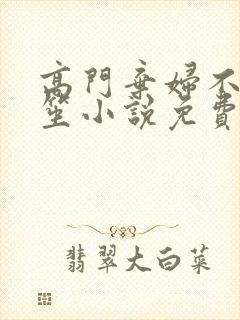 高門棄婦不
笙小說免費
翡翠大白菜